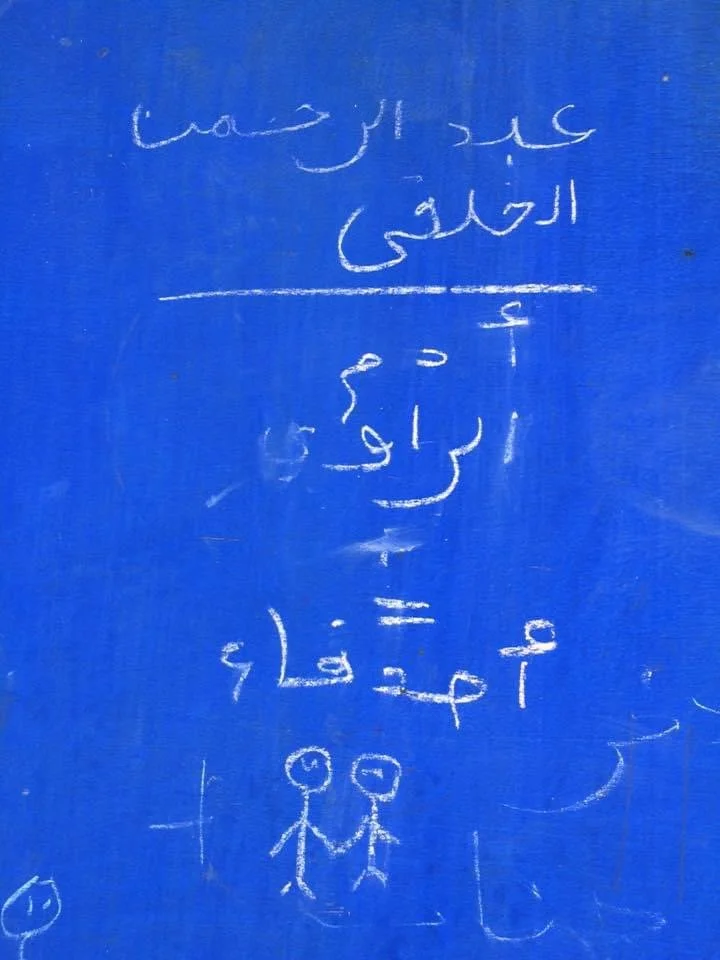 عبد الرحمن
الخلفي
أدم
الراوي
+
=
أصدقاء
+